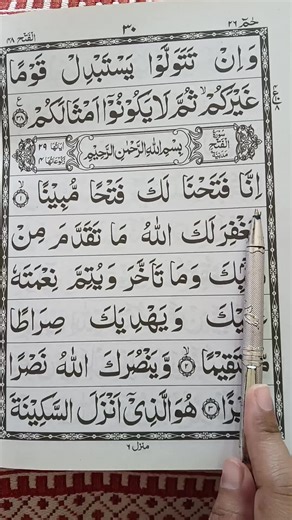 حٰمٓ ٢٦
٣٠
الفتح ٤٨
وَاِنْ تَتَوَلَّوْا يَسْتَبْدِلْ قَوْمًا
غَيْرَكُمْ ۙ ثُمَّ لَا يَكُوْنُوْۤا اَمْثَالَكُمْ ۝٣٨
سُوْرَةُ الْفَتْحِ مَدَنِيَّةٌ
بِسْمِ اللّٰهِ الرَّحْمٰنِ الرَّحِيْمِ
اٰيَاتُهَا ٢٩
رُكُوْعَاتُهَا ٤
اِنَّا فَتَحْنَا لَكَ فَتْحًا مُّبِيْنًا ۝١
يَغْفِرَ لَكَ اللّٰهُ مَا تَقَدَّمَ مِنْ
بِكَ وَمَا تَاَخَّرَ وَيُتِمَّ نِعْمَتَهٗ
يْكَ وَيَهْدِيَكَ صِرَاطًا
تَقِيْمًا ۝٢ وَّيَنْصُرَكَ اللّٰهُ نَصْرًا
يْزًا ۝٣ هُوَ الَّذِيْۤ اَنْزَلَ السَّكِيْنَةَ
منزل ٦